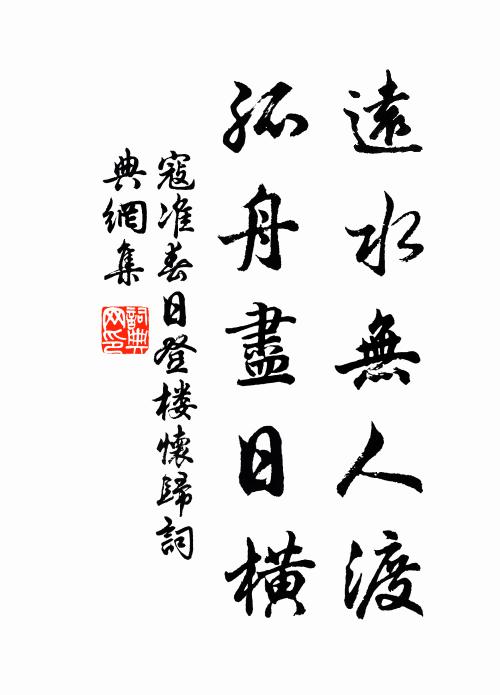 遠水無人渡
孤舟盡日橫
寇准春日登楼懷歸詞
典網集
詞典网印